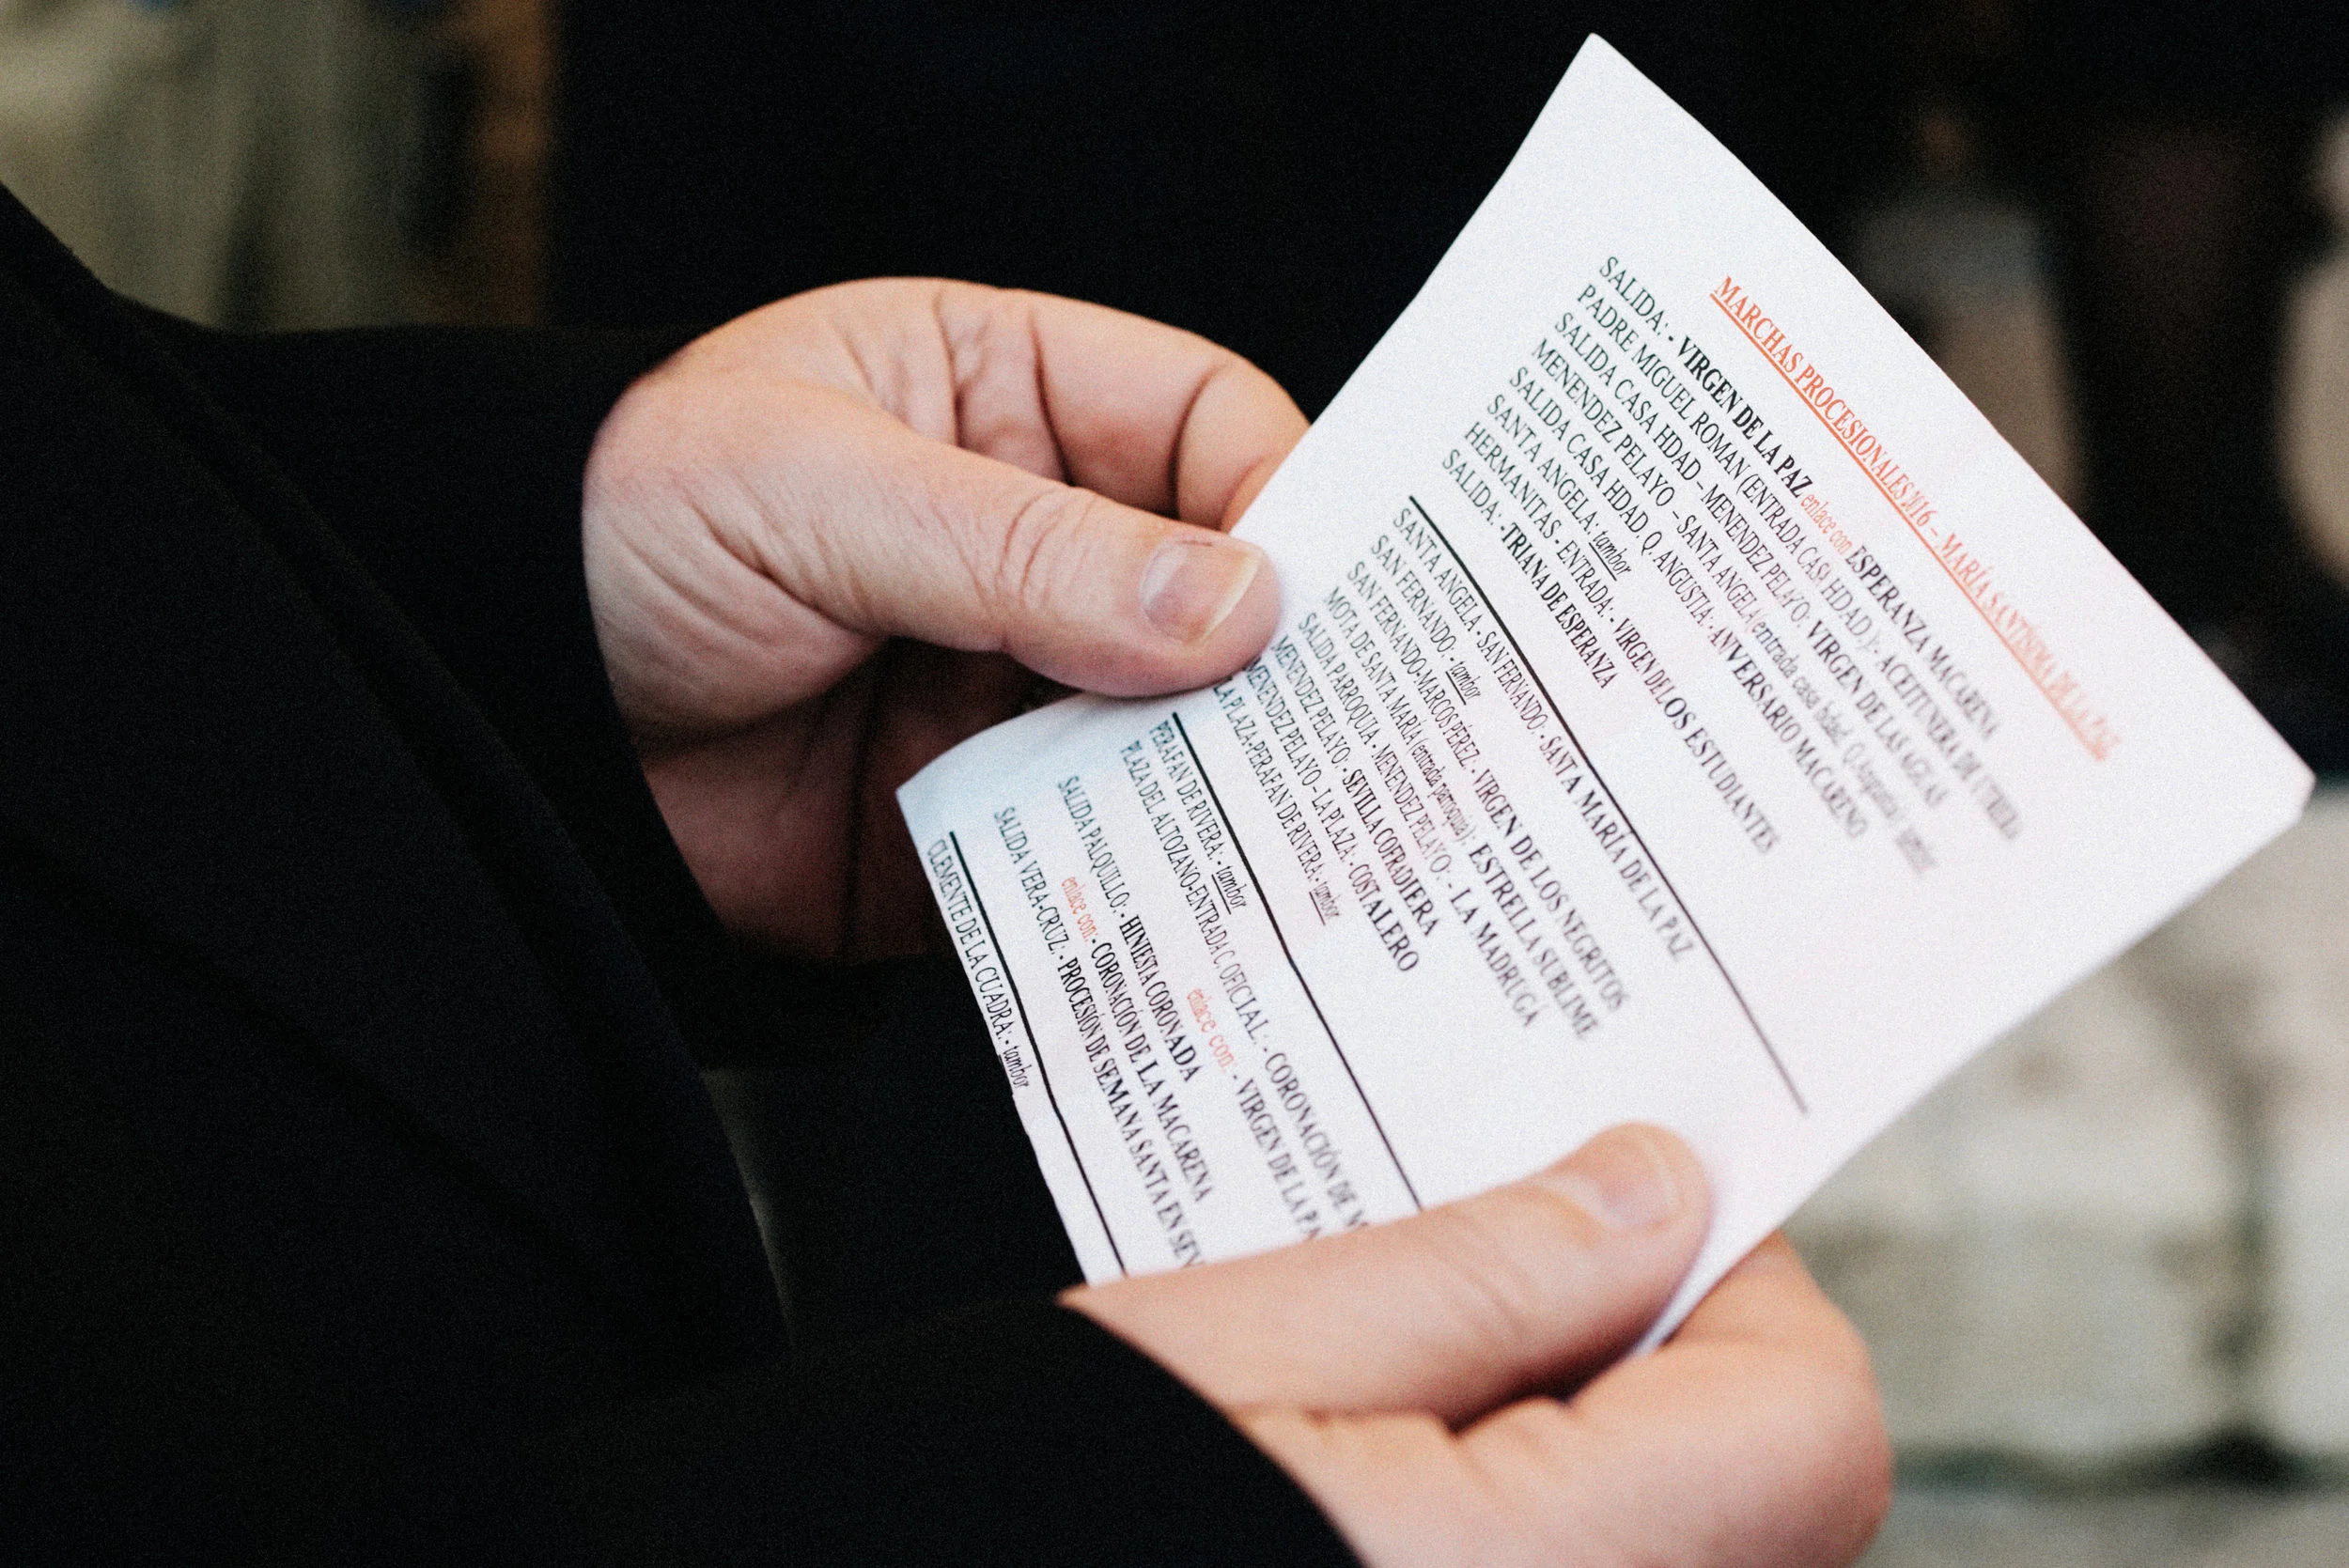 MARCHAS PROCESIONALES 2016 – MARÍA SANTÍSIMA DE LA PAZ
SALIDA: - VIRGEN DE LA PAZ enlace con ESPERANZA MACARENA
PADRE MIGUEL ROMAN (ENTRADA CASA HDAD.): - ACEITUNERA DE UTRERA
SALIDA CASA HDAD – MENENDEZ PELAYO: VIRGEN DE LAS AGUAS
MENENDEZ PELAYO – SANTA ANGELA (entrada casa hdad. Q. Angustia): tambor
SALIDA CASA HDAD Q. ANGUSTIA: - ANIVERSARIO MACARENO
SANTA ANGELA: tambor
HERMANITAS - ENTRADA: - VIRGEN DE LOS ESTUDIANTES
SALIDA: - TRIANA DE ESPERANZA
SANTA ANGELA - SAN FERNANDO: - SANTA MARÍA DE LA PAZ
SAN FERNANDO: - tambor
SAN FERNANDO-MARCOS PÉREZ: - VIRGEN DE LOS NEGRITOS
MOTA DE SANTA MARÍA (entrada parroquia): ESTRELLA SUBLIME
SALIDA PARROQUIA - MENENDEZ PELAYO: - LA MADRUGÁ
MENENDEZ PELAYO: - SEVILLA COFRADIERA
MENENDEZ PELAYO – LA PLAZA: - COSTALERO
LA PLAZA-PERAFAN DE RIVERA: - tambor
PERAFAN DE RIVERA: - tambor
PLAZA DEL ALTOZANO-ENTRADA C. OFICIAL: - CORONACIÓN DE
enlace con: - VIRGEN DE LA PA
SALIDA PALQUILLO: - HINIESTA CORONADA
enlace con: - CORONACIÓN DE LA MACARENA
SALIDA VERA-CRUZ: - PROCESIÓN DE SEMANA SANTA EN SEV
CLEMENTE DE LA CUADRA: - tambor